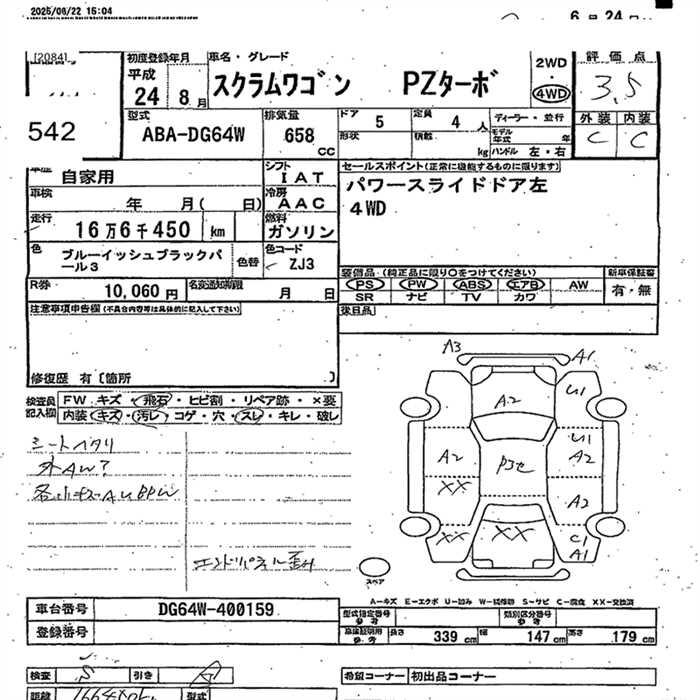 2025/06/22 15:04
6月24日
[2084]
初度登録年月
車名・グレード
2WD
・
4WD
評価点
平成
24 8月
スクラムワゴン PZターボ
3.5
542
型式
ABA-DG64W
排気量
658 CC
ドア 5
定員 4 人
形状
積載 kg
ディーラー・並行
モデル年式 年
ハンドル 左・右
外装 内装
C C
車歴
自家用
シフト
IAT
セールスポイント(正常に機能するものに限ります)
パワースライドドア左
4WD
車検
年 月( 日)
冷房
AAC
走行
16万6千450 km
燃料
ガソリン
色
ブルーイッシュブラックパ
ール3
色替
色コード
ZJ3
装備品(純正品に限り○をつけてください)
新車保証書
PS PW ABS エアB AW
有・無
SR ナビ TV カワ
R券
10,060 円
名変通知期限
月 日
注意事項申告欄(不具合内容等は具体的に記入して下さい)
後日品
修復歴 有〔箇所 〕
検査員
記入欄
FW キズ・飛石・ヒビ割・リペア跡・×要
内装 キズ・汚レ・コゲ・穴・スレ・キレ・破レ
シートヘタリ
外AW?
エンドパネル歪み
A3
A1
A2
U1
A2
U1
A2
XX
A2
XX
XX
C1
A1
スペア
A-キズ E-エクボ U-凹み W-補修跡 S-サビ C-腐食 XX-交換済
車台番号
DG64W-400159
登録番号
型式指定番号
参考
類別区分番号
参考
車庫証明用
参考
長さ 339 cm
幅 147 cm
高さ 179 cm
検査
引き
希望コーナー
初出品コーナー
距離
型式